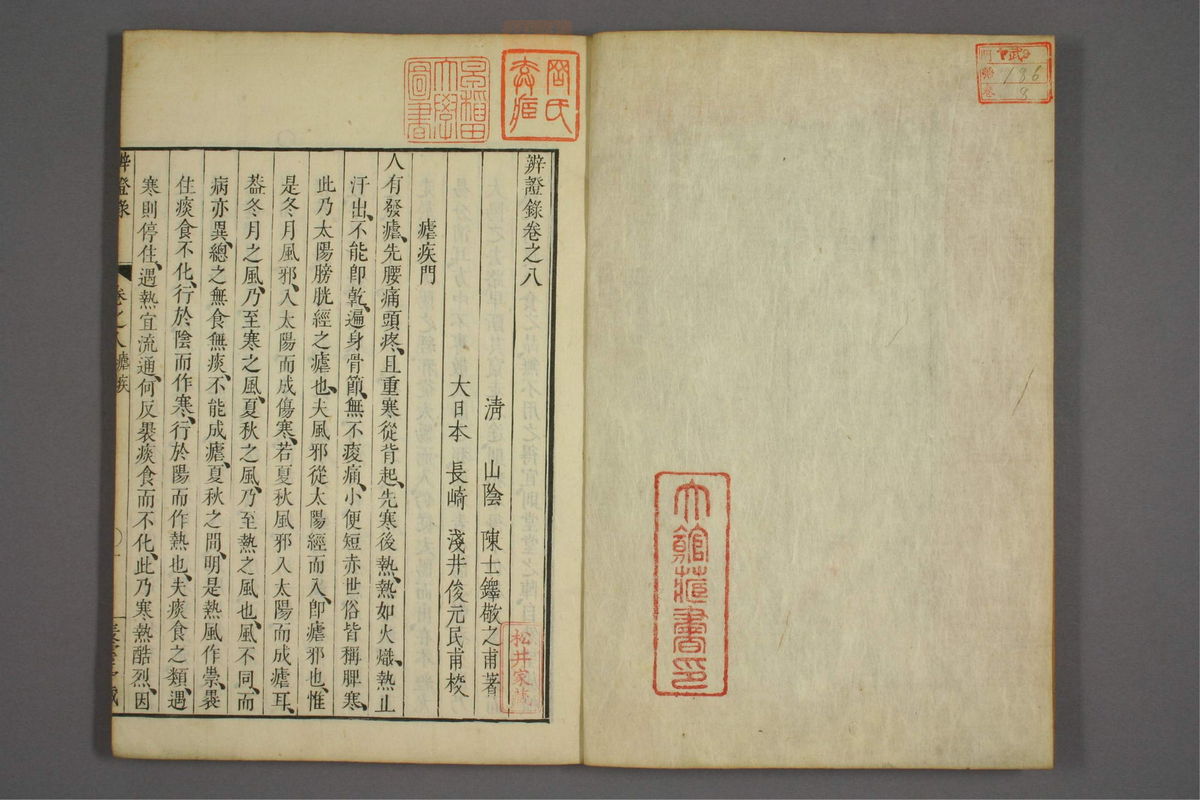 辨證錄卷之八
清 山陰 陳士鐸敬之甫著
大日本 長崎 淺井俊元民甫校
瘧疾門
人有發瘧、先腰痛頭疼、且重寒從背起、先寒後熱、熱如火熾、熱止
汗出、不能卽乾、遍身骨節、無不痠痛、小便短赤世俗皆稱脾寒、
此乃太陽膀胱經之瘧也、夫風邪從太陽經而入、卽瘧邪也、惟
是冬月風邪、入太陽而成傷寒、若夏秋風邪入太陽而成瘧耳、
葢冬月之風、乃至寒之風、夏秋之風、乃至熱之風也、風不同、而
病亦異、總之無食無痰、不能成瘧、夏秋之間、明是熱風作祟、褁
住痰食不化、行於陰而作寒、行於陽而作熱也、夫痰食之類、遇
寒則停住、遇熱宜流通、何反褁痰食而不化、此乃寒熱酷烈、因
辨證錄 卷之八 瘧疾
早稲田大學圖書
松井家藏
藏書印
武
136
8